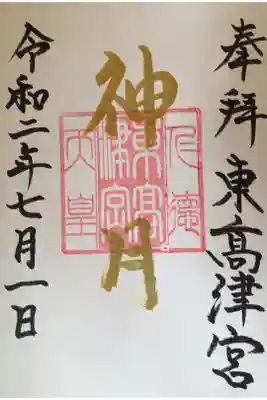 奉拜 東高津宮
神月
仁徳
東高
津宮
天皇
令和二年七月一日